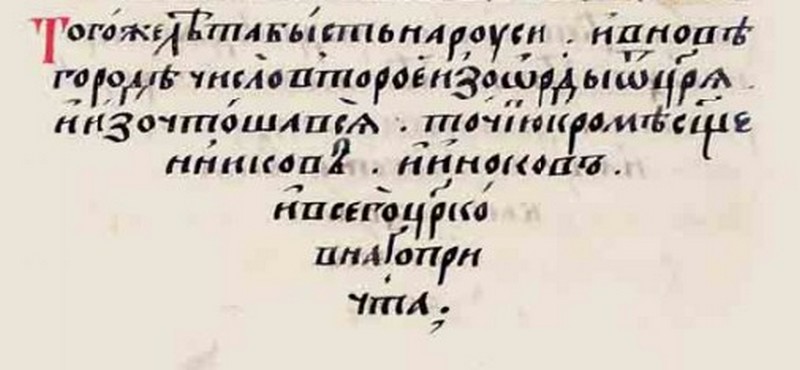 Того́желѣ́табы́стьнароуси . и҆вновѣ
городѣ число̀второеи҆зоѡ҆рды́ѿцр҃ѧ .
и҆и҆зочто́шавсѧ̀ . то́чїюкромѣсщ҃е
нниковъ . и҆и҆ноковъ .
и҆всегоцр҃ко́
внагопри
чта .,